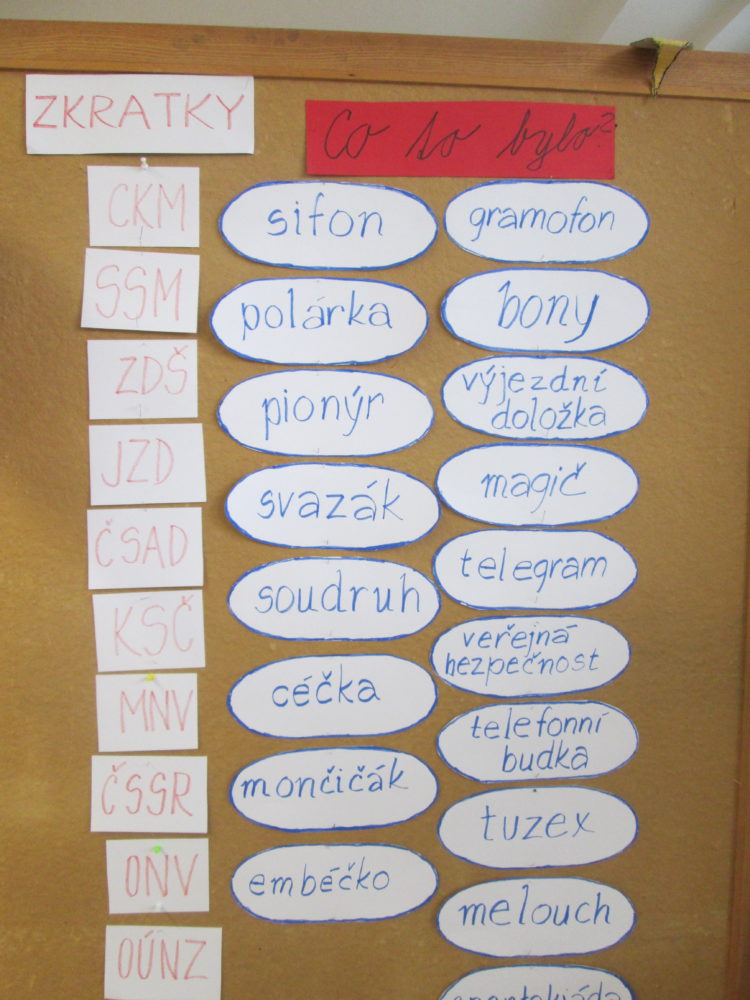 ZKRATKY
CKM
SSM
ZDŠ
JZD
ČSAD
KSČ
MNV
ČSSR
ONV
OÚNZ
Co to bylo?
sifon
polárka
pionýr
svazák
soudruh
céčka
mončičák
embéčko
gramofon
bony
výjezdní
doložka
magič
telegram
veřejná
bezpečnost
telefonní
budka
tuzex
melouch